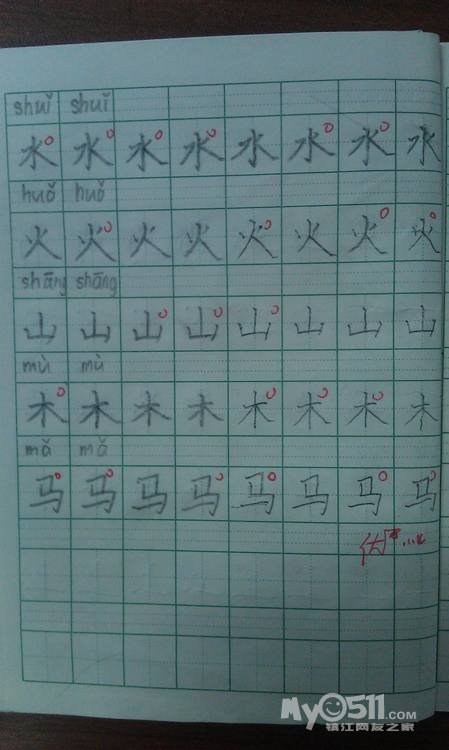 shuǐ shuǐ
水 水 水 水 水 水 水 水
huǒ huǒ
火 火 火 火 火 火 火 火
shāng shāng
山 山 山 山 山 山 山 山
mù mù
木 木 木 木 木 木 木 木
mǎ mǎ
马 马 马 马 马 马 马 马
My0511.com
镇江网友之家